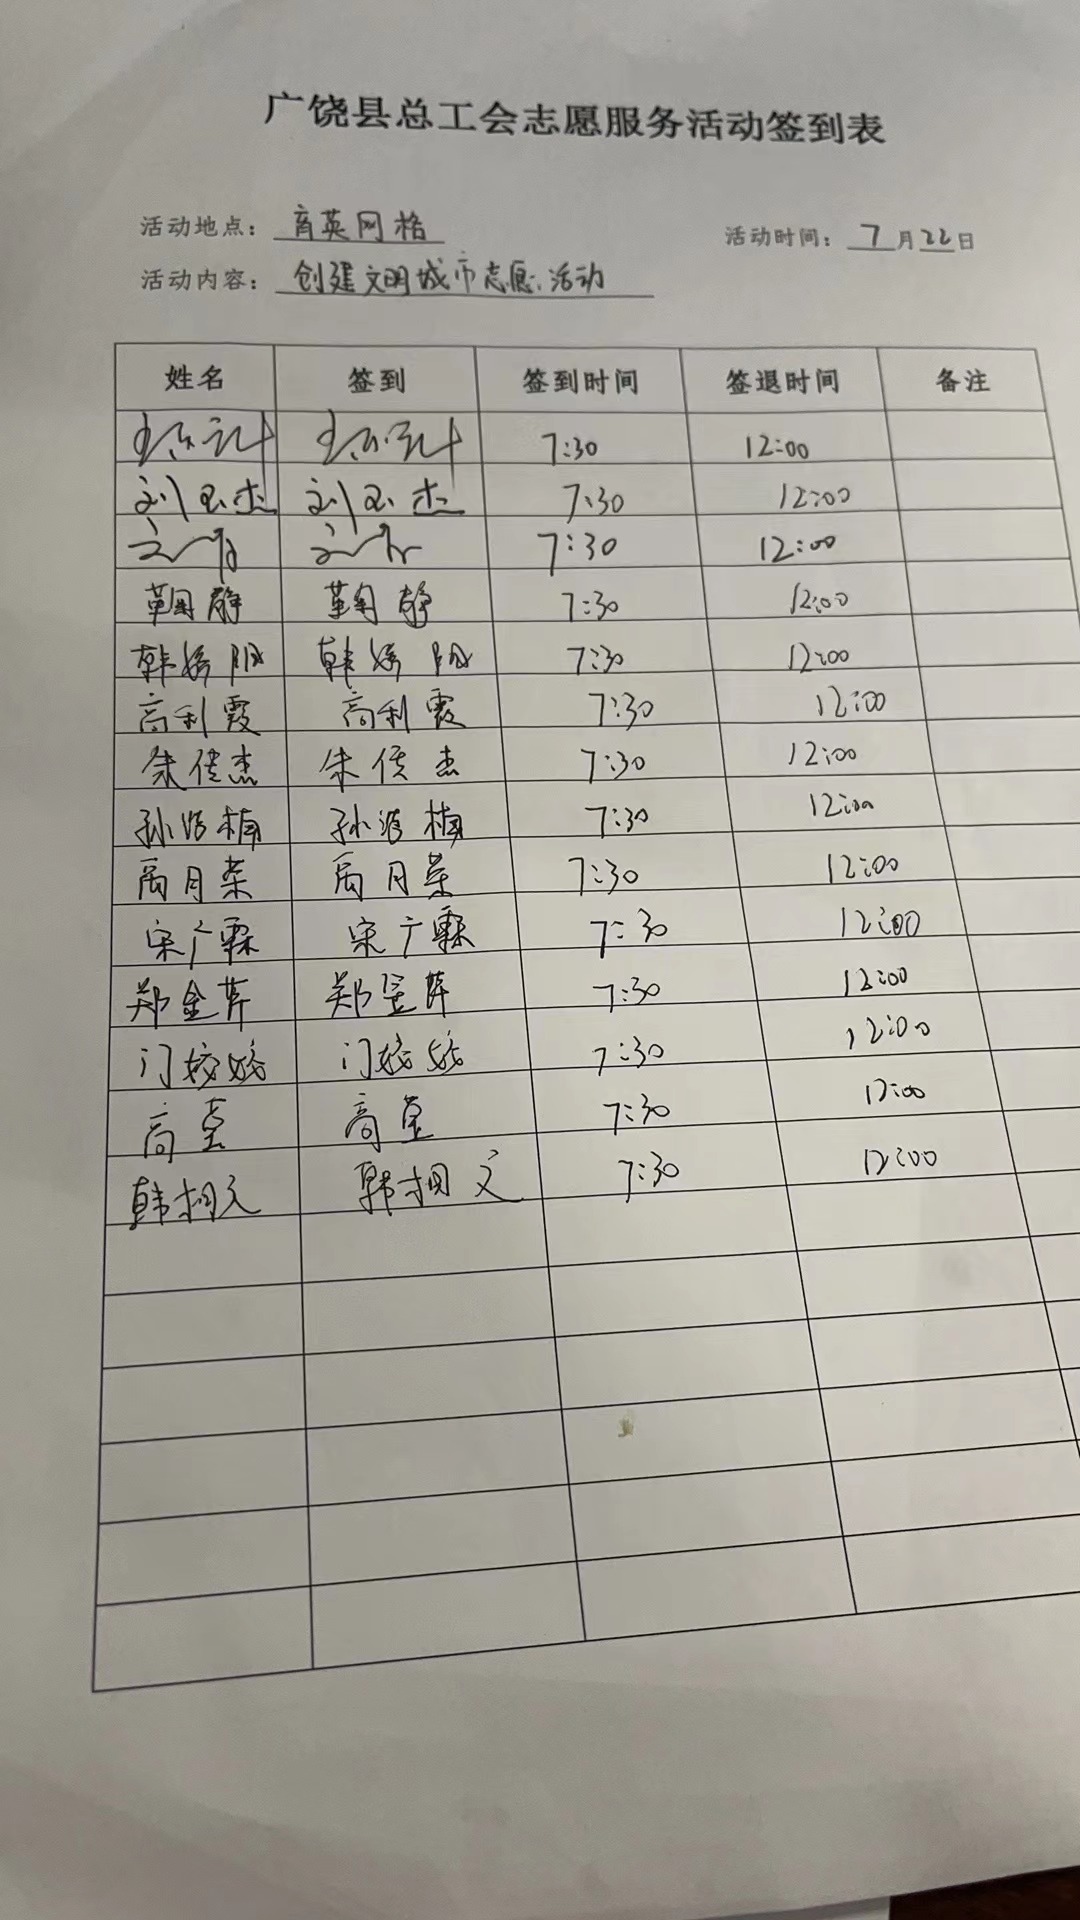 广饶县总工会志愿服务活动签到表
活动地点： 育英网格 活动时间： 7月22日
活动内容： 创建文明城市志愿活动
姓名 签到 签到时间 签退时间 备注
7:30 12:00
刘玉杰 刘玉杰 7:30 12:00
7:30 12:00
鞠静 鞠静 7:30 12:00
韩 韩 7:30 12:00
高利霞 高利霞 7:30 12:00
朱佳杰 朱佳杰 7:30 12:00
孙洁楠 孙洁楠 7:30 12:00
禹月荣 禹月荣 7:30 12:00
宋广霖 宋广霖 7:30 12:00
郑金芹 郑金芹 7:30 12:00
门姣姣 门姣姣 7:30 12:00
高 高 7:30 12:00
韩相文 韩相文 7:30 12:00